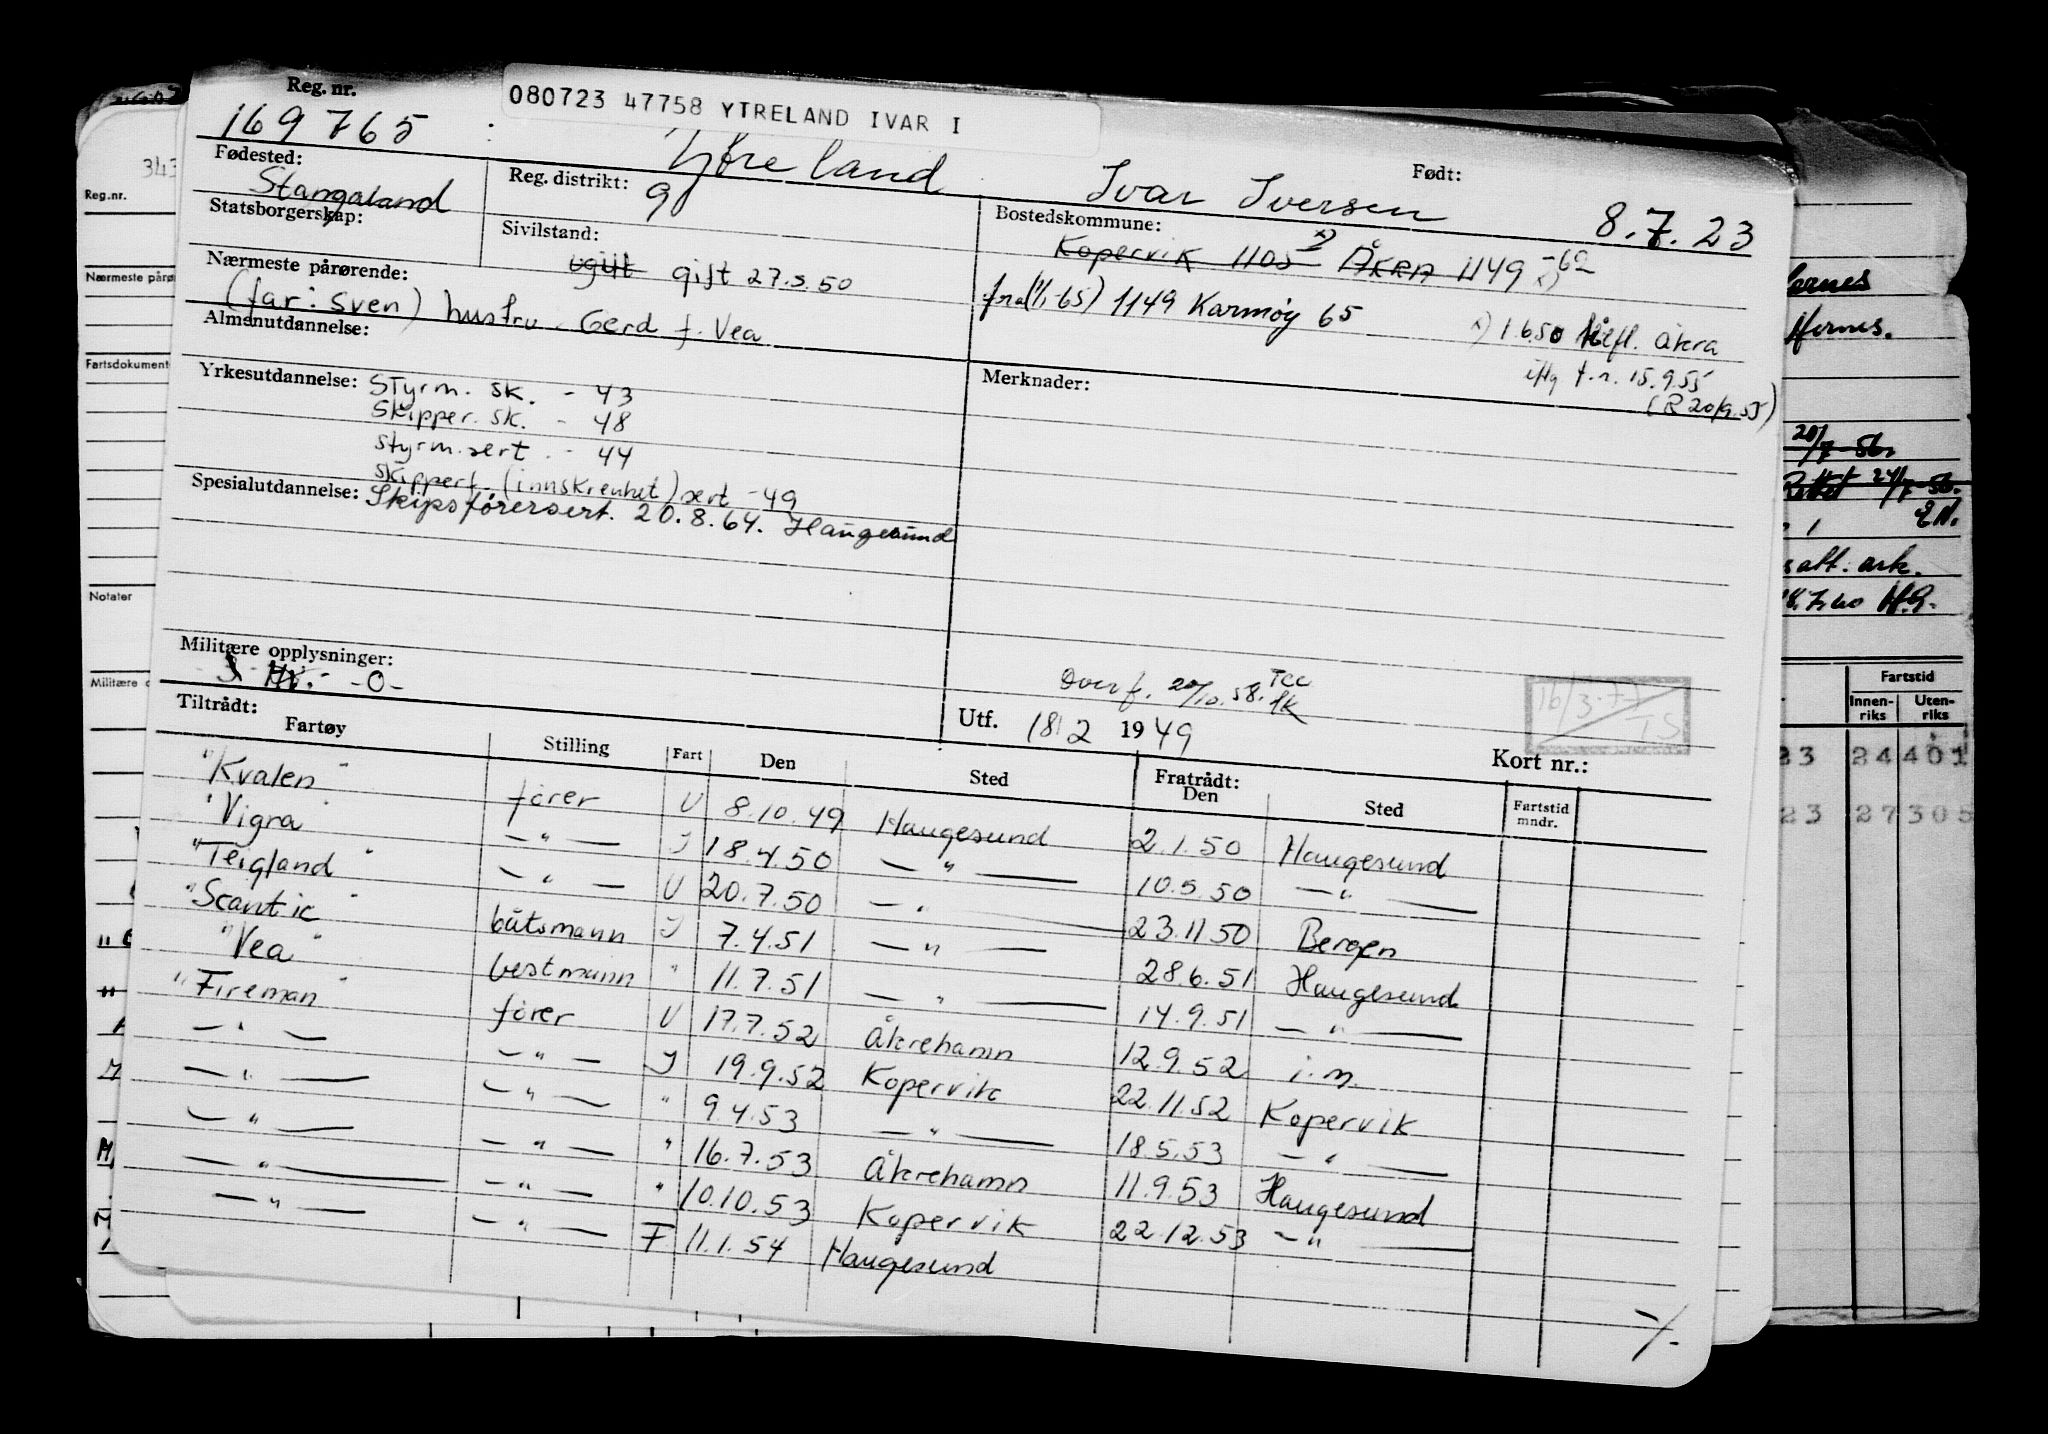 080723 47758 YTRELAND IVAR I
Reg. nr.
169765 Ytreland Ivar Iversen Født: 8.7.23
Fødested: Stangaland
Reg. distrikt: 9
Bostedskommune: Kopervik 1105 x) ÅKRA 1149 -62
Statsborgerskap:
Sivilstand: ugift gift 27.5.50
fra (1/1-65) 1149 Karmøy 65
Nærmeste pårørende: (far: Sven) hustru Gerd f. Vea
x) 1.6.50 tilfl. Åkra
iflg f.r. 15.9.55
(R 20/9.55)
Almenutdannelse:
Yrkesutdannelse: Styrm. sk. - 43
Skipper. sk. - 48
styrm.sert. - 44
skippert. (innskrenhet) sert - 49
Merknader:
Spesialutdannelse: Skipsførersert. 20.8.64. Haugesund
Militære opplysninger:
-0-
Overf. 20/10.58.
Utf. 18/2 1949
16/3.77
TS
Kort nr.:
Tiltrådt:
Fartøy Stilling Fart Den Sted Fratrådt: Den Sted Fartstid mndr.
"Kvalen" fører U 8.10.49 Haugesund 2.1.50 Haugesund
"Vigra" — " — I 18.4.50 — " — 10.5.50 — " —
"Teigland" — " — U 20.7.50 — " — 23.11.50 Bergen
"Scantic" båtsmann I 7.4.51 — " — 28.6.51 Haugesund
"Vea" bestmann " 11.7.51 — " — 14.9.51 — " —
"Fireman" fører U 17.7.52 Åkrehamn 12.9.52 i.m.
— " — — " — I 19.9.52 Kopervik 22.11.52 Kopervik
— " — — " — " 9.4.53 — " — 18.5.53 — " —
— " — — " — " 16.7.53 Åkrehamn 11.9.53 Haugesund
— " — — " — " 10.10.53 Kopervik 22.12.53 — " —
— " — — " — F 11.1.54 Haugesund
Reg.nr.
343
Nærmeste pårø
Fartsdokument
Notater
Militære
Hornes.
20/7-56.
Rettet 24/7-56.
E.N.
alt. ark.
H.G.
Fartstid
Innen-riks Uten-riks
23 24 401
23 27305